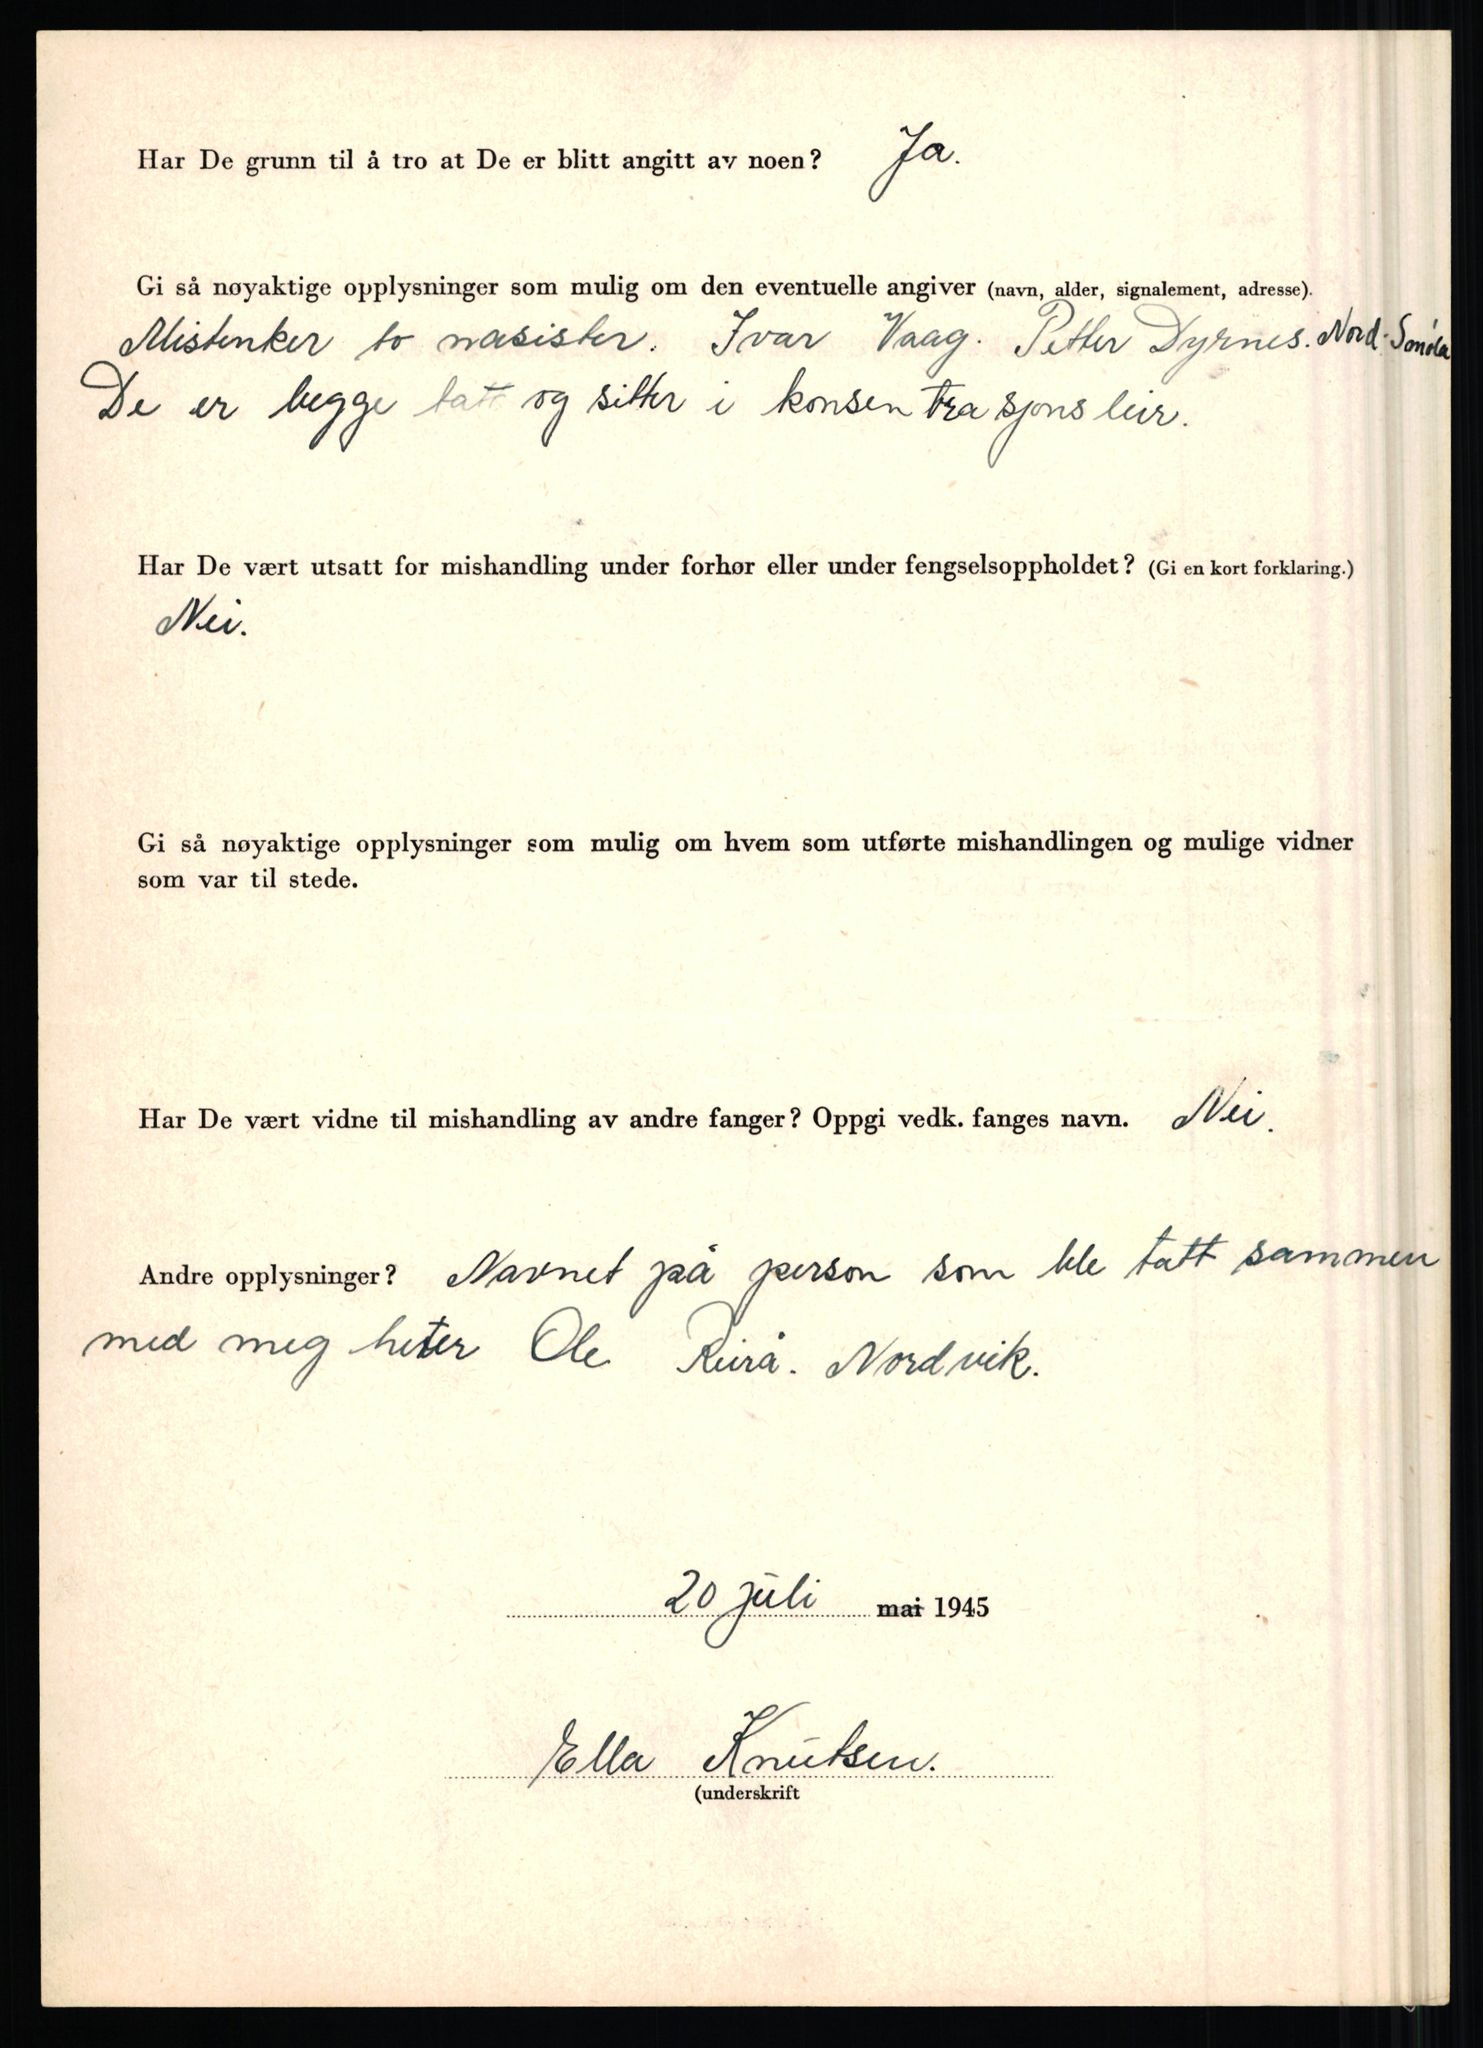 Har De grunn til å tro at De er blitt angitt av noen? Ja.
Gi så nøyaktige opplysninger som mulig om den eventuelle angiver (navn, alder, signalement, adresse).
Mistenker to nasister. Ivar Vaag. Petter Dyrnes. Nord-
De er begge tatt og sitter i konsentrasjonsleir.
Har De vært utsatt for mishandling under forhør eller under fengselsoppholdet? (Gi en kort forklaring.)
Nei.
Gi så nøyaktige opplysninger som mulig om hvem som utførte mishandlingen og mulige vidner
som var til stede.
Har De vært vidne til mishandling av andre fanger? Oppgi vedk. fanges navn. Nei.
Andre opplysninger? Navnet på person som ble tatt sammen
med meg heter Ole Reirå. Nordvik.
20 juli mai 1945
Ella Knutsen.
(underskrift